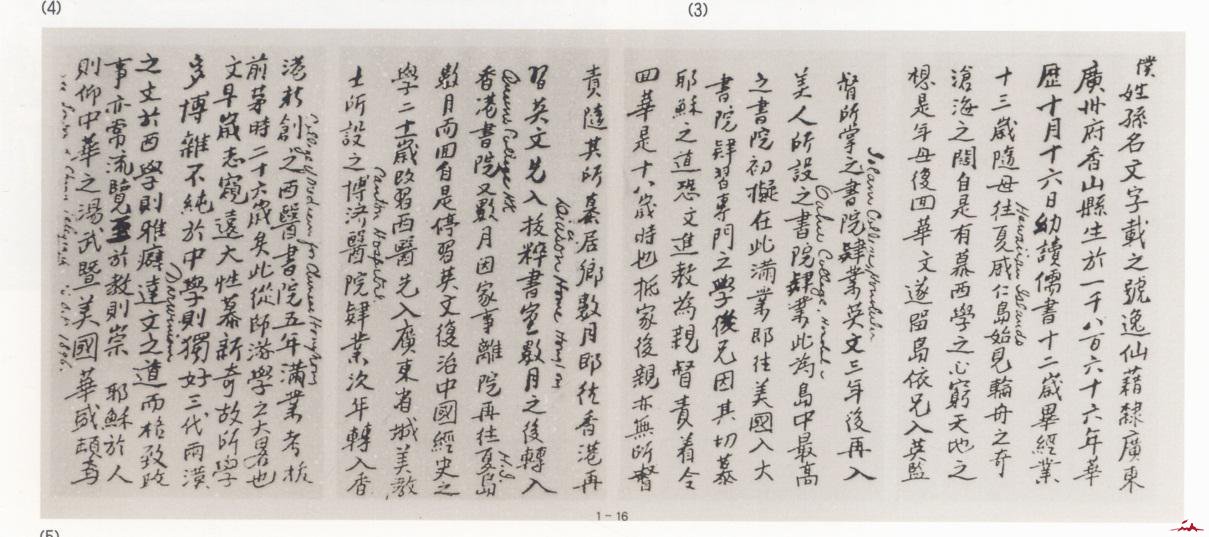 (4)
(3)
僕
姓孫名文字載之號逸仙藉隸廣東
廣州府香山縣生於一千八百六十六年華
歷十月十六日幼讀儒書十二歲畢經業
十三歲隨母往夏威仁島始見輪舟之奇
Hawaiian Islands
滄海之闊自是有慕西學之心窮天地之
想是年母復回華文遂留島依兄入英監
督所掌之書院肄業英文三年後再入
Iolani College Honolulu
美人所設之書院肄業此為島中最高
Oahu College,
之書院初擬在此滿業即往美國入大
書院肄習專門之學後兄因其切慕
耶穌之道恐文進教為親督責着令
回華是十八歲時也抵家後親亦無所督
責隨其所慕居鄉數月即往香港再
習英文先入拔粹書室數月之後轉入
Home
香港書院又數月因家事離院再往夏島
Queens College HK
H.I.
數月而回自是停習英文復治中國經史之
學二十一歲改習西醫先入廣東省城美教
士所設之博濟醫院肄業次年轉入香
Canton Hospital
港新創之西醫書院五年滿業考拔
College of Medicine for Chinese Hongkong
前茅時二十六歲矣此從師游學之大畧也
文早歲志窺遠大性慕新奇故所學
多博雜不純於中學則獨好三代兩漢
之文於西學則雅癖達文之道而格致政
Darwinism
事亦常流覽至於教則崇 耶穌於人
則仰中華之湯武暨美國華盛頓焉
1896
1-16
(5)